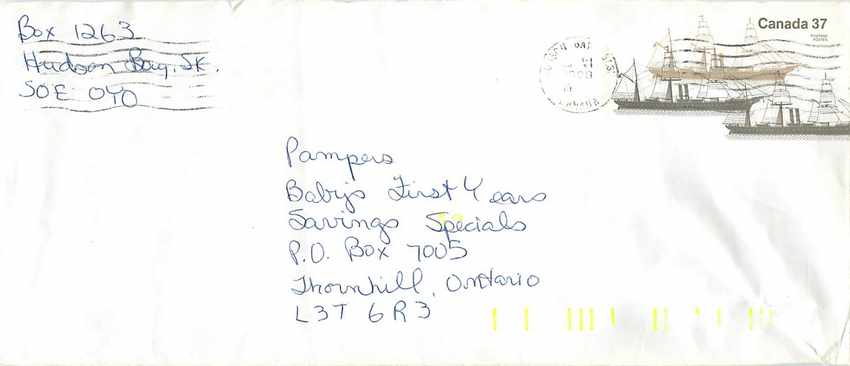 Box 1263
Hudson Bay, SK.
S0E 0Y0
Canada 37
Postage
Postes
Pampers
Baby's First Years
Savings Specials
P.O. Box 7005
Thornhill, Ontario
L3T 6R3